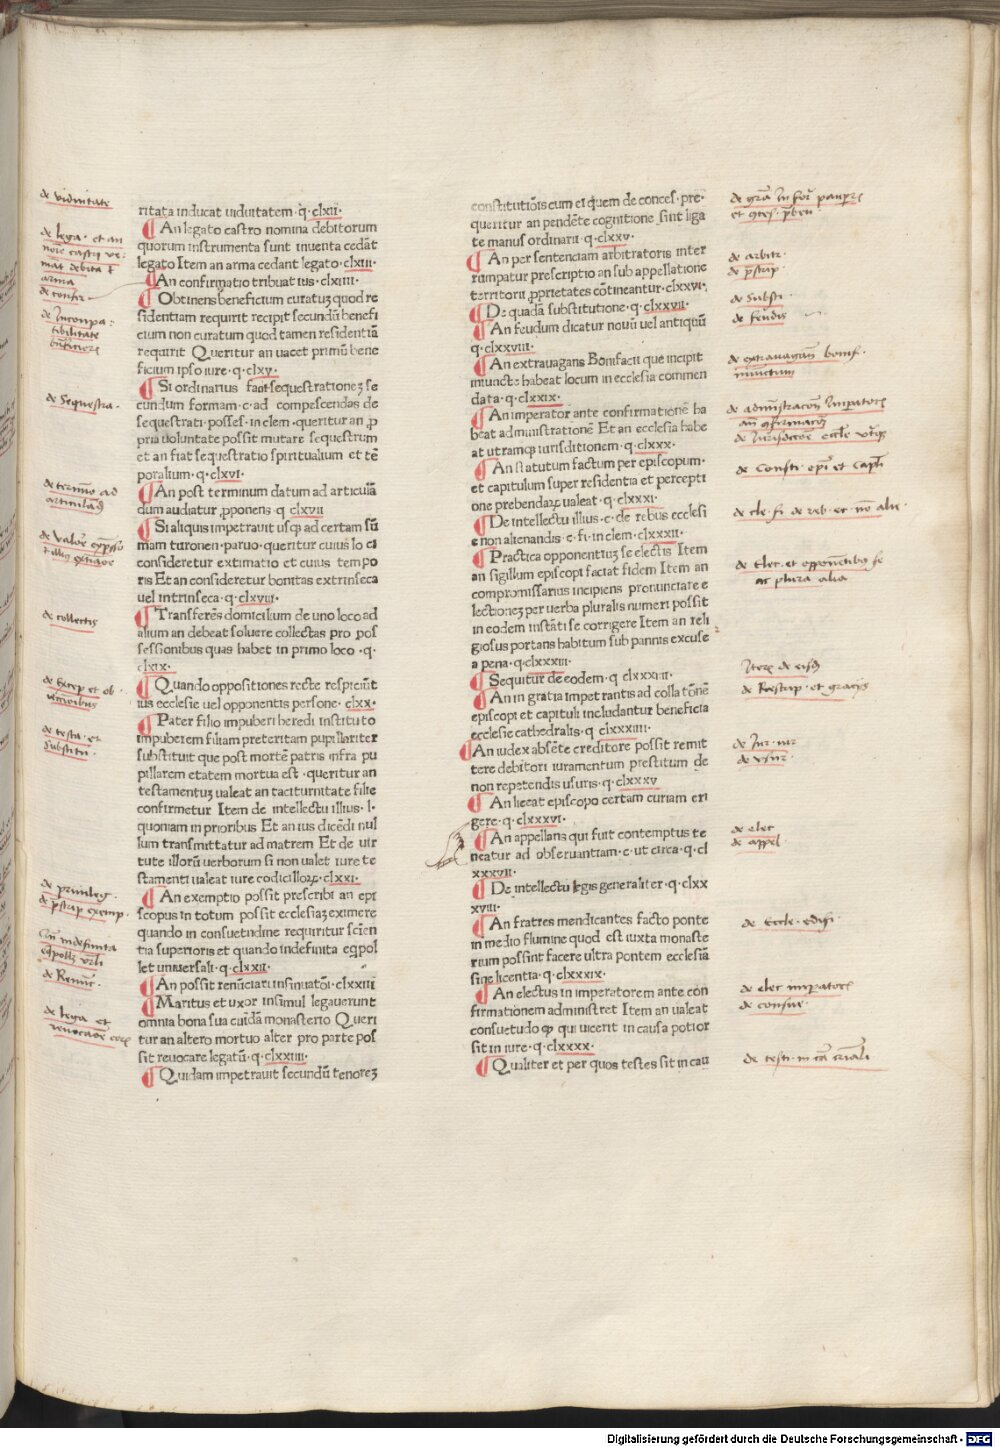 ritata inducat uiduitatem· q̄· clxii·
¶ An legato castro nomina debitorum
quorum instrumenta sunt inuenta cedāt
legato Item an arma cedant legato· clxiii·
¶ An confirmatio tribuat ius· clxiiii·
¶ Obtinens beneficium curatuꝫ quod re
sidentiam requirit recipit secundū benefi
cium non curatum quod tamen residentiā
requirit Queritur an uacet primū bene
ficium ipso iure· q· clxv·
¶ Si ordinarius faciat sequestrationeꝫ se
cundum formam· c· ad compescendas de
sequestrati· posses· in clem· queritur an ꝓ
pria uoluntate possit mutare sequestrum
et an fiat sequestratio spiritualium et tē
poralium· q· clxvi·
¶ An post terminum datum ad articulā
dum audiatur ꝓponens· q clxvii
¶ Si aliquis impetrauit usqꝫ ad certam sū
mam turonen· paruo· queritur cuius lo ci
consideretur extimatio et cuius tempo
ris Et an consideretur bonitas extrinseca
uel intrinseca· q· clxviii·
¶ Transferēs domicilium de uno loco ad
alium an debeat soluere collectas pro pos
sessionibus quas habet in primo loco· q·
clxix·
¶ Quando oppositiones recte respiciūt
ius ecclesie uel opponentis persone· clxx·
¶ Pater filio impuberi heredi instituto
impuberem filiam preteritam pupillariter
substituit que post mortē patris infra pu
pillarem etatem mortua est· queritur an
testamentuꝫ ualeat an taciturnitate filie
confirmetur Item de intellectu illius· l·
quoniam in prioribus Et an ius dicēdi nul
lum transmittatur ad matrem Et de uir
tute illorū uerborum si non ualet iure te
stamenti ualeat iure codicilloꝝ· clxxi·
¶ An exemptio possit prescribi an epi
scopus in totum possit ecclesiaꝫ eximere
quando in consuetudine requiritur scien
tia superioris et quando indefinita eqpol
let uniuersali· q· clxxii·
¶ An possit renūciari insinuatōi· clxxiii
¶ Maritus et uxor insimul legauerunt
omnia bona sua cuidā monasterio Queri
tur an altero mortuo alter pro parte pos
sit reuocare legatū· q· clxxiiii·
¶ Quidam impetrauit secundū tenoreꝫ
constitutiōis cum ei q̄dem de conces· pre·
queritur an pendēte cognitione sint liga
te manus ordinarii· q· clxxv·
¶ An per sentenciam arbitratoris inter
rumpatur prescriptio an sub appellatione
territorii ꝓprietates cōtineantur· clxxvi·
¶ De quadā substitutione· q· clxxvii·
¶ An feudum dicatur nouū uel antiquū
q· clxxviii·
¶ An extrauagans Bonifacii que incipit
iniuncte habeat locum in ecclesia commen
data· q· clxxix·
¶ An imperator ante confirmationē ha
beat administrationē Et an ecclesia habe
at utramqꝫ iurisditionem· q· clxxx·
¶ An statutum factum per episcopum·
et capitulum super residentia et percepti
one prebendaꝝ ualeat· q· clxxxi·
¶ De intellectu illius· c· de rebus ecclesi
e non alienandis· c· fi· in clem· clxxxii·
¶ Practica opponentiuꝫ se electis Item
an sigillum episcopi faciat fidem Item an
compromissarius incipiens pronunciare e
lectioneꝫ per uerba pluralis numeri possit
in eodem instāti se corrigere Item an reli
giosus portans habitum sub pannis excuse
a pena· q· clxxxiii·
¶ Sequitur de eodem· q clxxxiii·
¶ An in gratia impetrantis ad colla tōnē
episcopi et capituli includantur beneficia
ecclesie cathedralis· q clxxxiiii·
¶ An iudex absēte creditore possit remit
tere debitori iuramentum prestitum de
non repetendis usuris· q· clxxxv
¶ An liceat episcopo certam curiam eri
gere· q· clxxxvi·
¶ An appellans qui fuit contemptus te
neatur ad obseruantiam· c· ut circa· q· cl
xxxvii·
¶ De intellectu legis generaliter· q· clxx
xviii·
¶ An fratres mendicantes facto ponte
in medio flumine quod est iuxta monaste
rium possint facere ultra pontem ecclesiā
sine licentia· q· clxxxix·
¶ An electus in imperatorem ante con
firmationem administret Item an ualeat
consuetudo ꝙ qui uicerit in causa potior
sit in iure· q· clxxxx·
¶ Qualiter et per quos testes sit in cau
de viduitate
de Sequestra·
de collectis
de arbitr·
de p̄scrip·
de Substi·
de feudis
de elec
de appel·
de Eccle· edifi·
de consue·
Digitalisierung gefördert durch die Deutsche Forschungsgemeinschaft - DFG